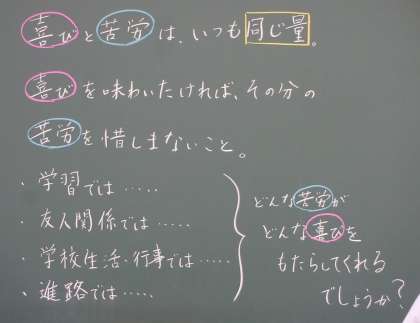 喜びと苦労は、いつも同じ量。
喜びを味わいたければ、その分の
苦労を惜しまないこと。
・学習では‥‥‥
・友人関係では‥‥‥
・学校生活・行事では‥‥‥
・進路では‥‥‥
どんな苦労が
どんな喜びを
もたらしてくれる
でしょうか?